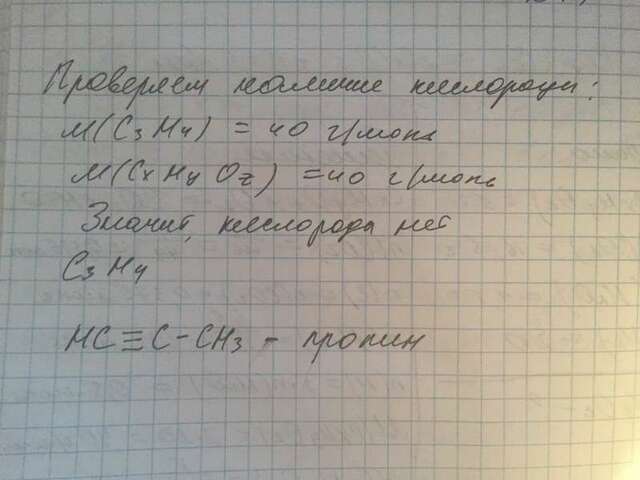 Проверяем наличие кислорода:
M(C3H4) = 40 г/моль
M(CxHyOz) = 40 г/моль
Значит, кислорода нет
C3H4
HC≡C-CH3 - пропин